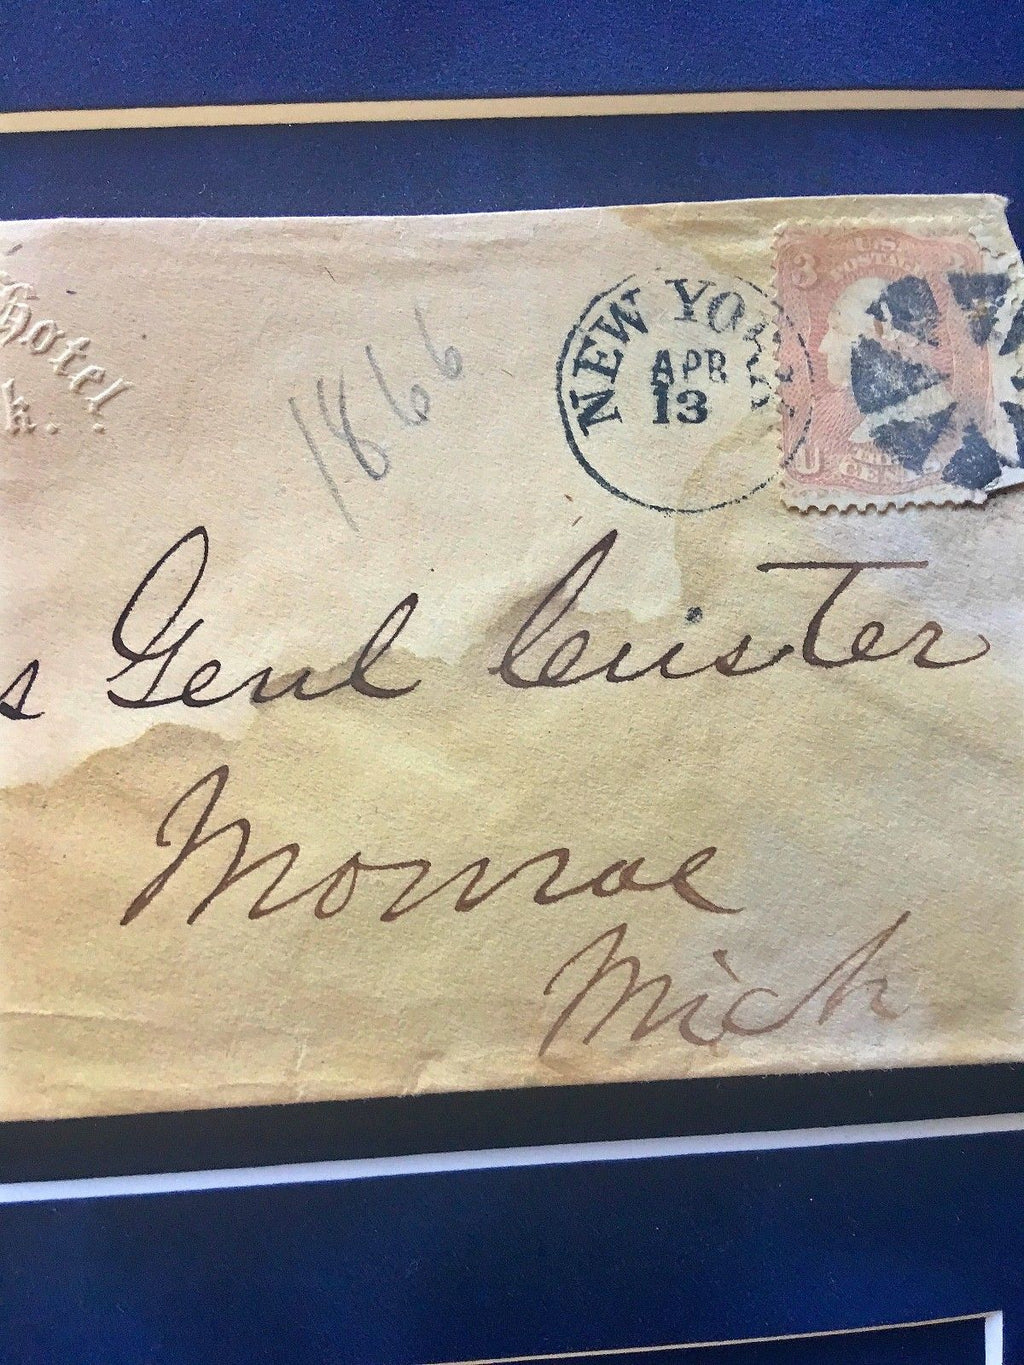 Hotel
k.
1866
NEW YORK
APR
13
3 U.S. 3
POSTAGE
U
THREE
CENTS
s Genl Custer
Monroe
Mich